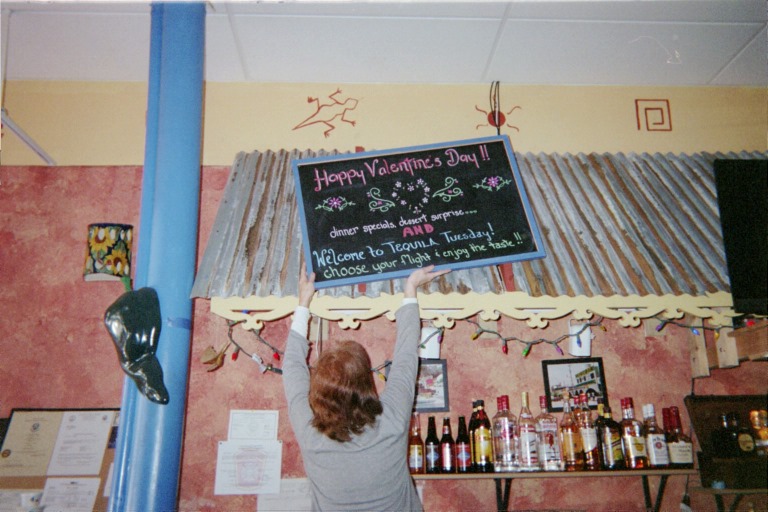 Happy Valentine's Day!!
dinner specials, dessert surprise....
AND
Welcome to TEQUILA Tuesday!
choose your flight & enjoy the taste!!